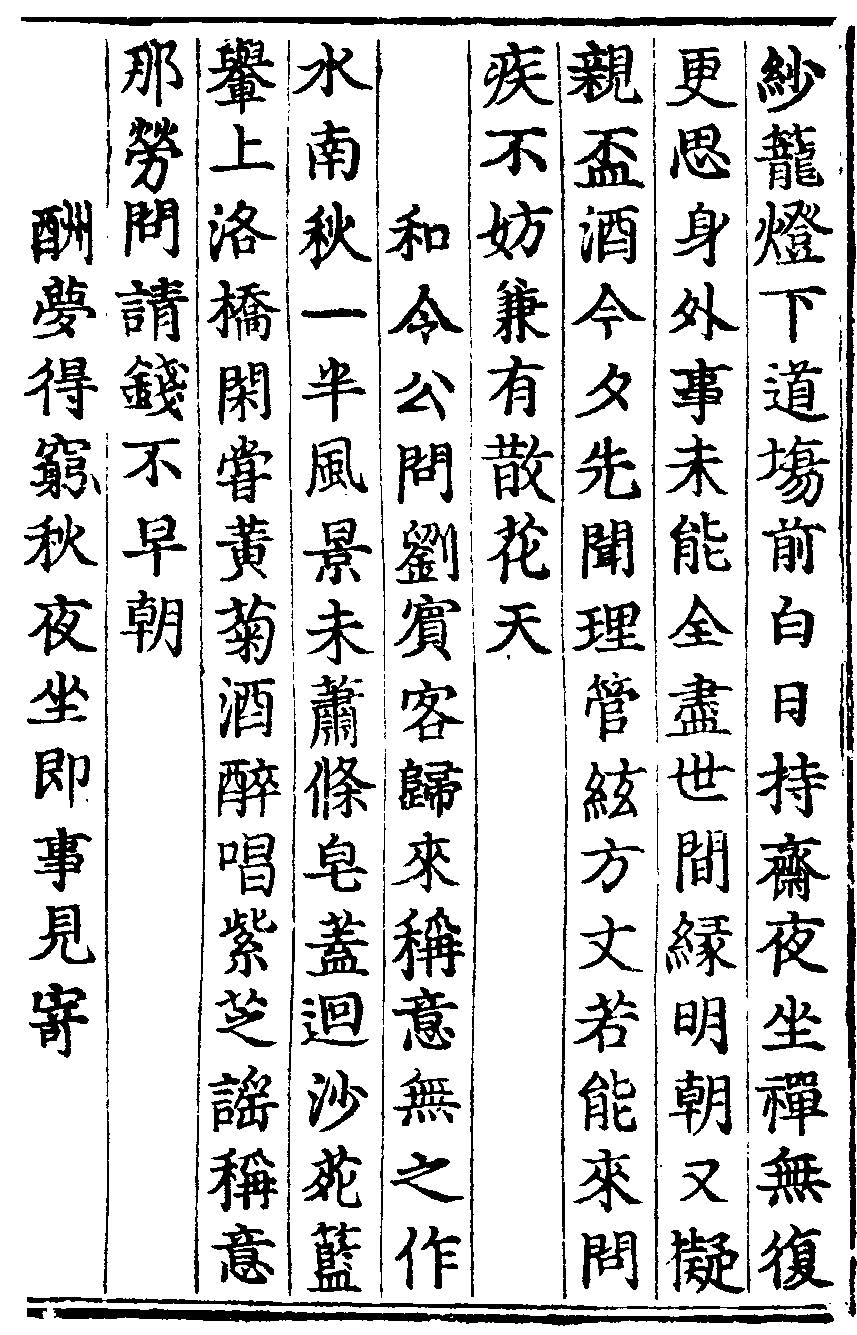 紗籠燈下道塲前白日持齋夜坐禪無復
更思身外事未能全盡世間緣明朝又擬
親盃酒今夕先聞理管絃方丈若能來問
疾不妨兼有散花天
和令公問劉賓客歸來稱意無之作
水南秋一半風景未蕭條皂蓋迴沙苑藍
轝上洛橋閑嘗黃菊酒醉唱紫芝謡稱意
那勞問請錢不早朝
酬夢得窮秋夜坐即事見寄